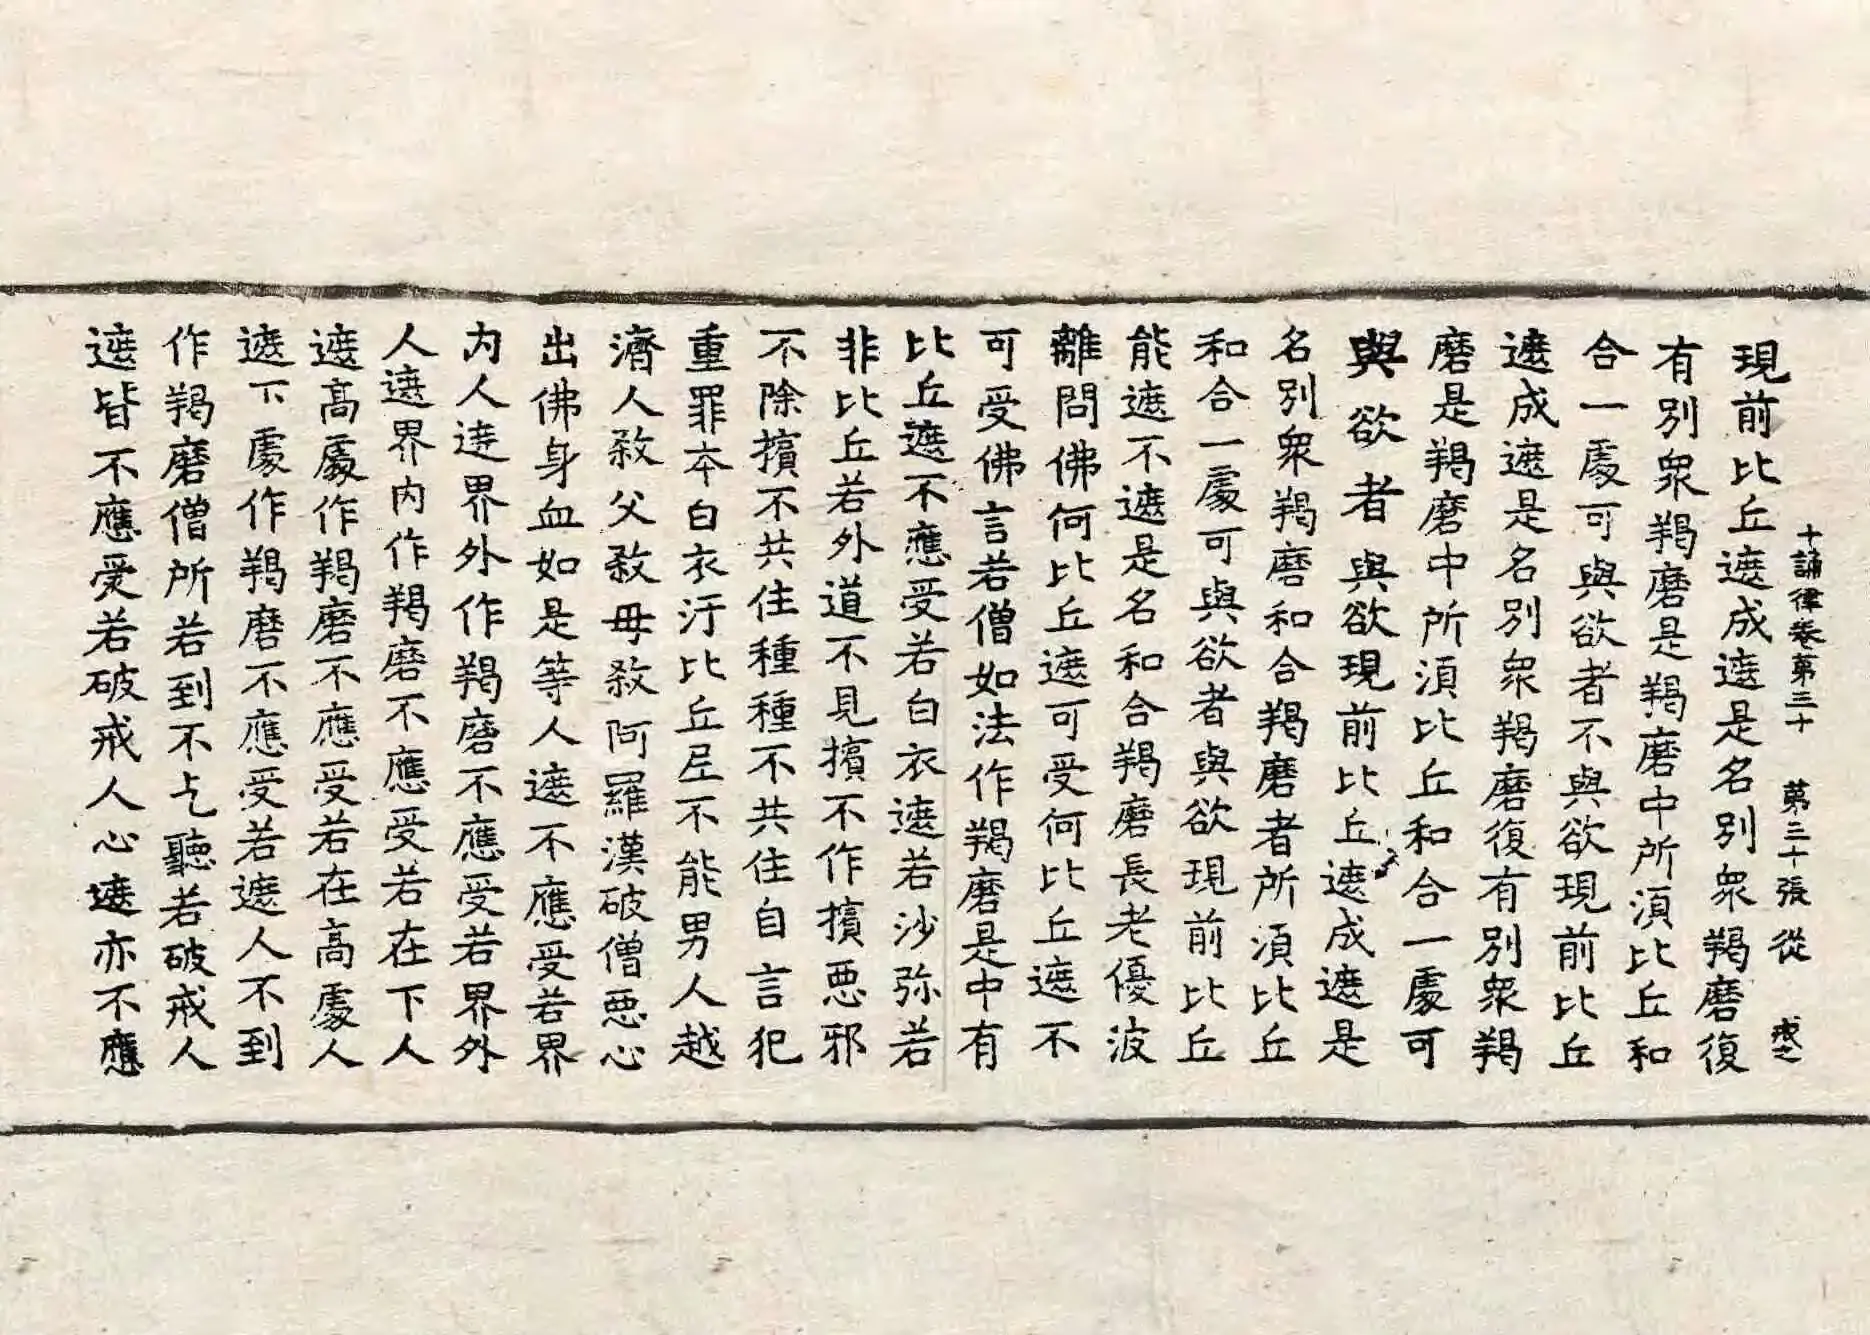 十誦律卷第三十 第三十張 從
現前比丘遮成遮是名別衆羯磨復
有別衆羯磨是羯磨中所須比丘和
合一處可與欲者不與欲現前比丘
遮成遮是名別衆羯磨復有別衆羯
磨是羯磨中所須比丘和合一處可
與欲者與欲現前比丘遮成遮是
名別衆羯磨和合羯磨者所須比丘
和合一處可與欲者與欲現前比丘
能遮不遮是名和合羯磨長老優波
離問佛何比丘遮可受何比丘遮不
可受佛言若僧如法作羯磨是中有
比丘遮不應受若白衣遮若沙弥若
非比丘若外道不見擯不作擯惡邪
不除擯不共住種種不共住自言犯
重罪本白衣汙比丘尼不能男人越
濟人殺父殺母殺阿羅漢破僧惡心
出佛身血如是等人遮不應受若界
內人遮界外作羯磨不應受若界外
人遮界內作羯磨不應受若在下人
遮高處作羯磨不應受若在高處人
遮下處作羯磨不應受若遮人不到
作羯磨僧所若到不乞聽若破戒人
遮皆不應受若破戒人心遮亦不應